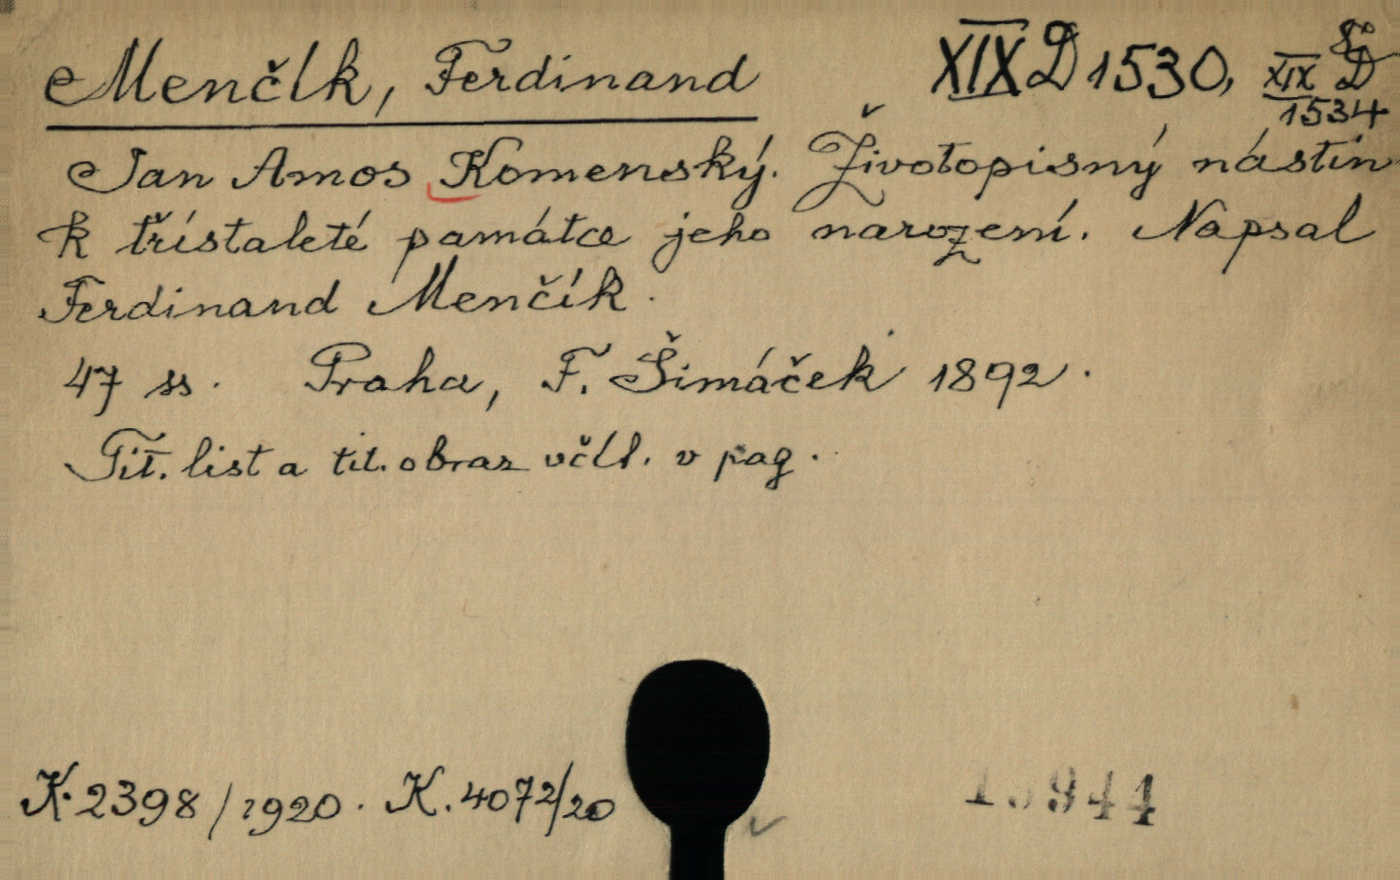 Menčík, Ferdinand XIX D 1530, XIX D 1534 8°
Jan Amos Komenský. Životopisný nástin
k třístaleté památce jeho narození. Napsal
Ferdinand Menčík.
47 ss. Praha, F. Šimáček 1892.
Tit. list a tit. obraz včít. v pag.
K. 2398/1920. K. 4072/20